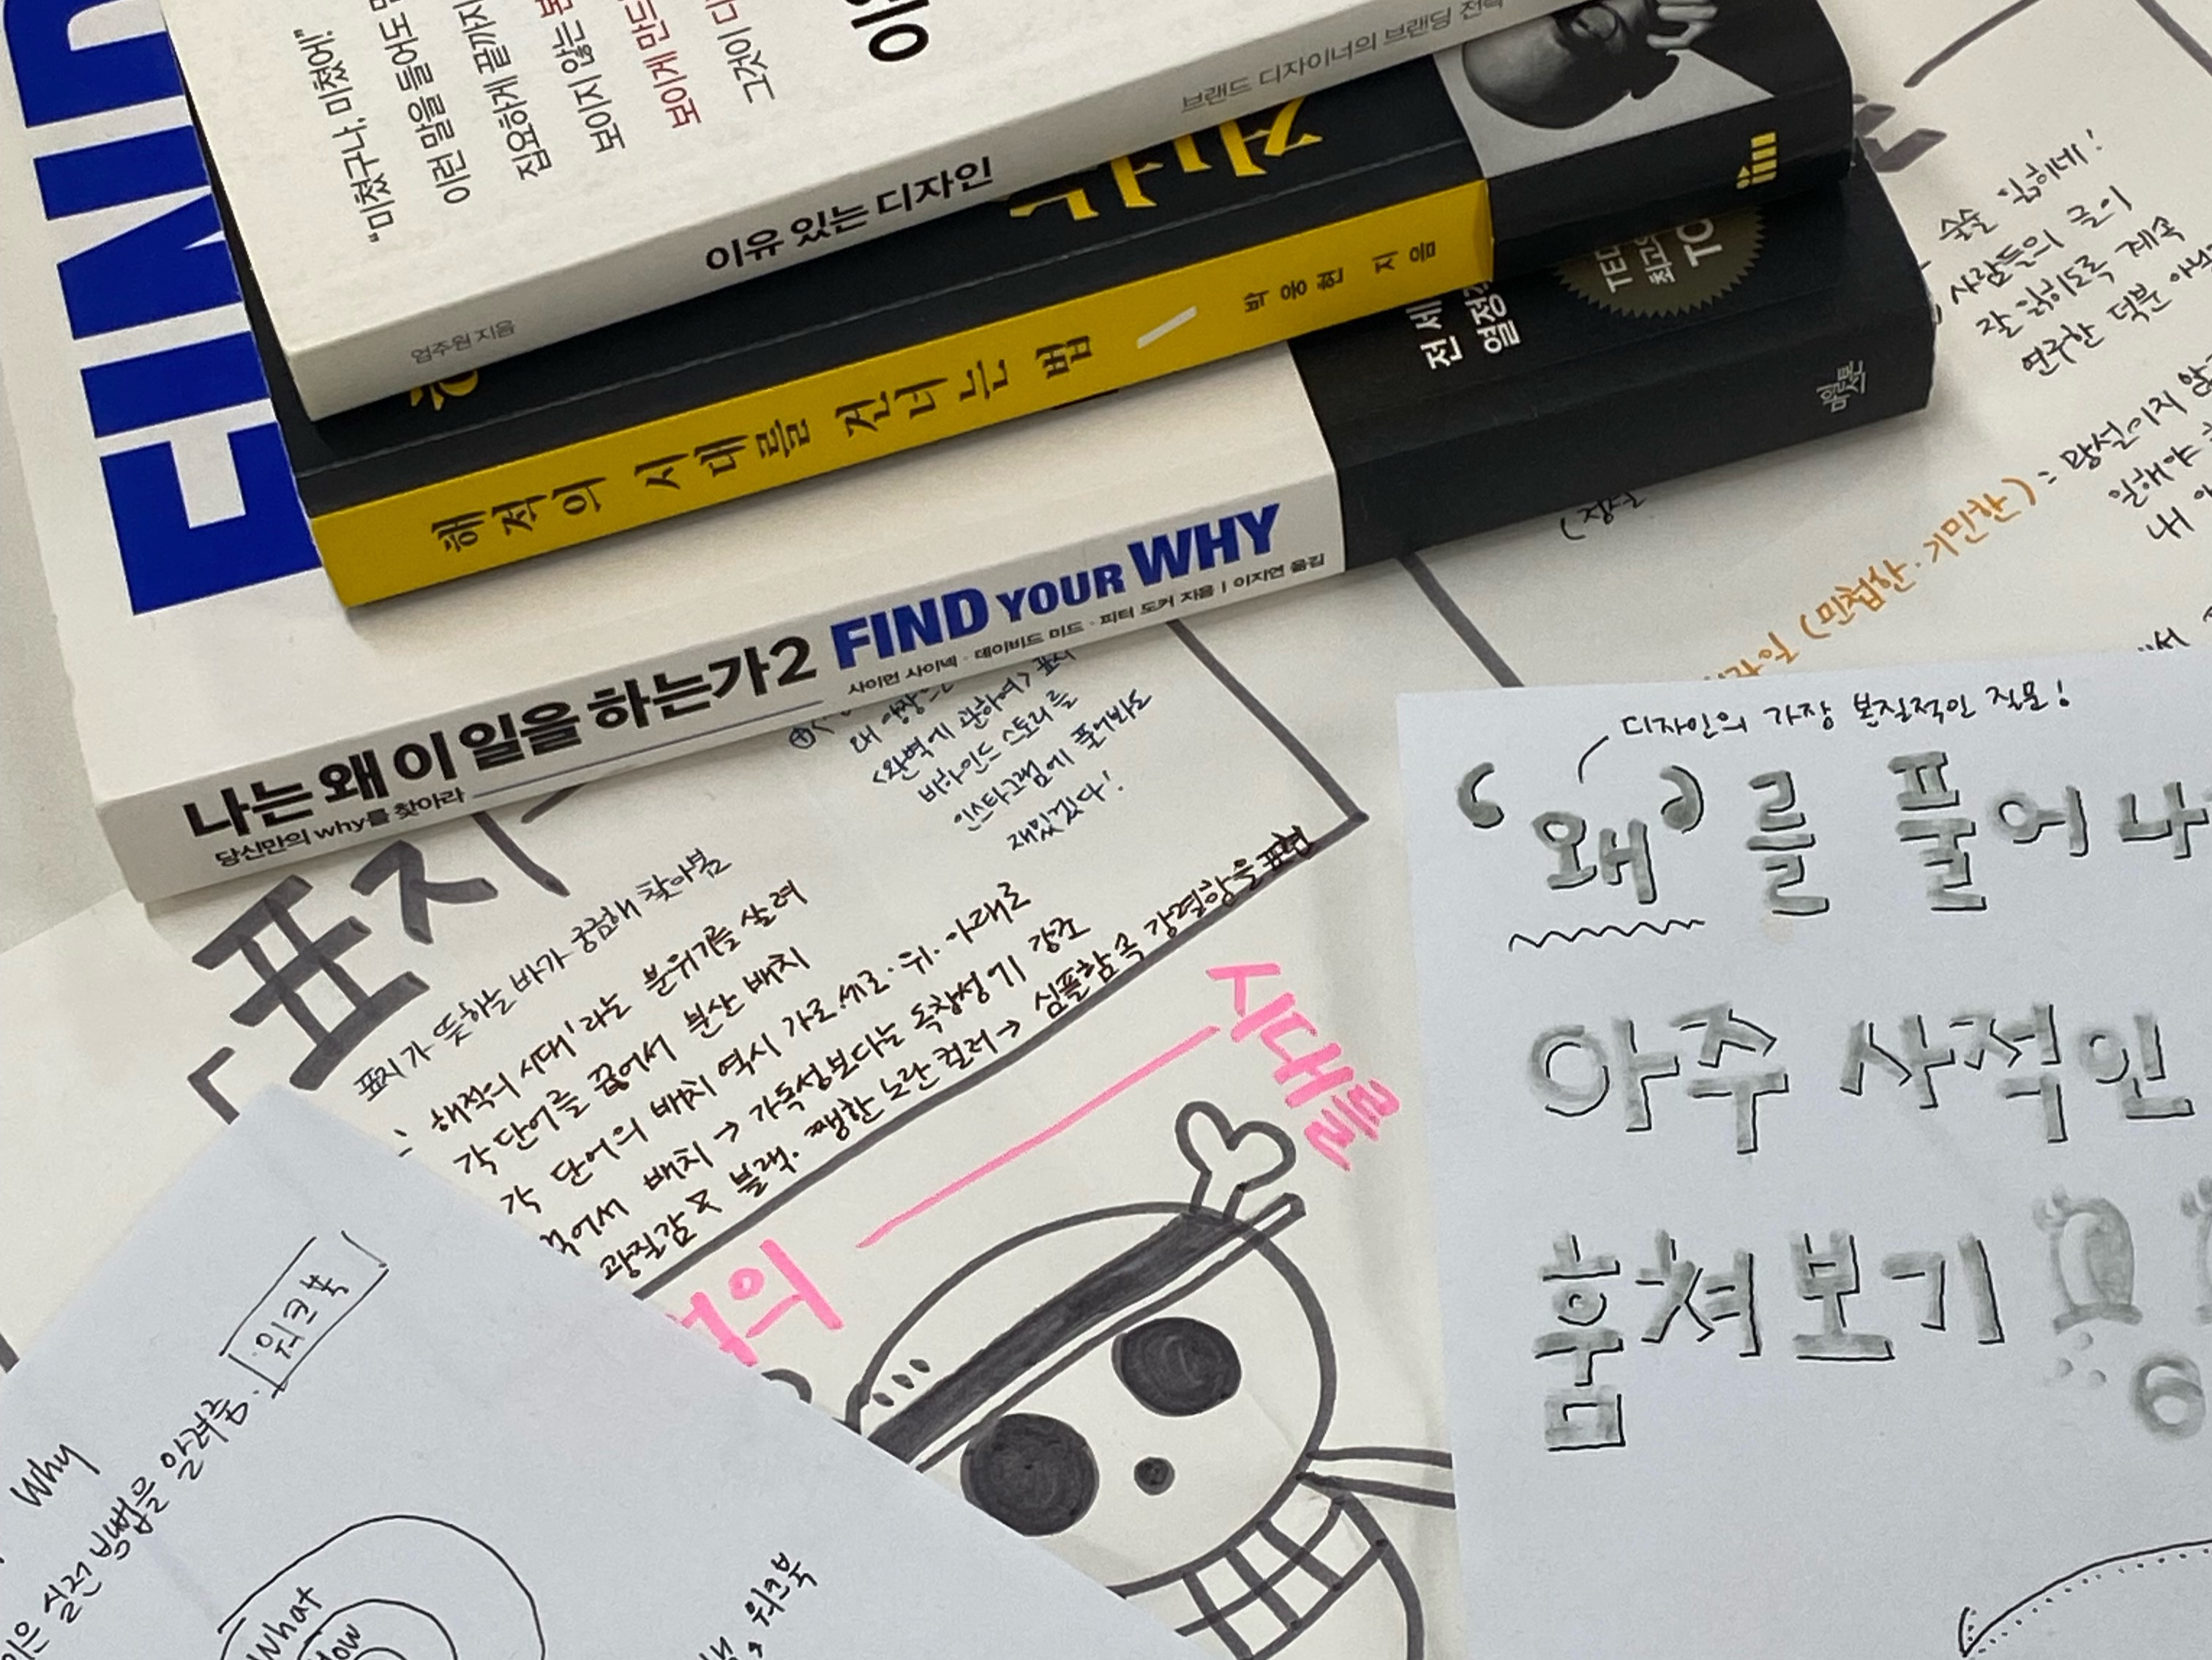 FIND
"미쳤구나, 미쳤어!"
이런 말을 들어도
집요하게 끝까지
보이지 않는
보이게 만드
그것이
이유 있는 디자인
엄주원 지음
브랜드 디자이너의 브랜딩 전략
해적의 시대를 건너는 법
박웅현 지음
전 세
열정
TED
최고의
TO
나는 왜 이 일을 하는가 2
당신만의 why를 찾아라
FIND YOUR WHY
사이먼 사이넥 · 데이비드 미드 · 피터 도커 지음 | 이지연 옮김
술술 읽히네!
사람들의 글이
잘 읽히도록 계속
연구한 덕분 아
(민첩한·기민한) : 망설이지 않
일해야
내
<완벽에 관하여> 표지
비하인드 스토리를
인스타그램에 풀어봐도
재밌겠다!
표지
표지가 뜻하는 바가 궁금해 찾아봄
해적의 시대'라는 분위기를 살려
각 단어를 끊어서 분산 배치
각 단어의 배치 역시 가로·세로·위·아래로
배치 → 가독성보다는 독창성이 강조
블랙. 쨍한 노란 컬러 → 심플함 속 강렬함을 표현
의
시대를
디자인의 가장 본질적인 질문!
'왜'를 풀어나
아주 사적인
훔쳐보기
워크북
Why
실전 방법을 알려줌.
What
How
워크북